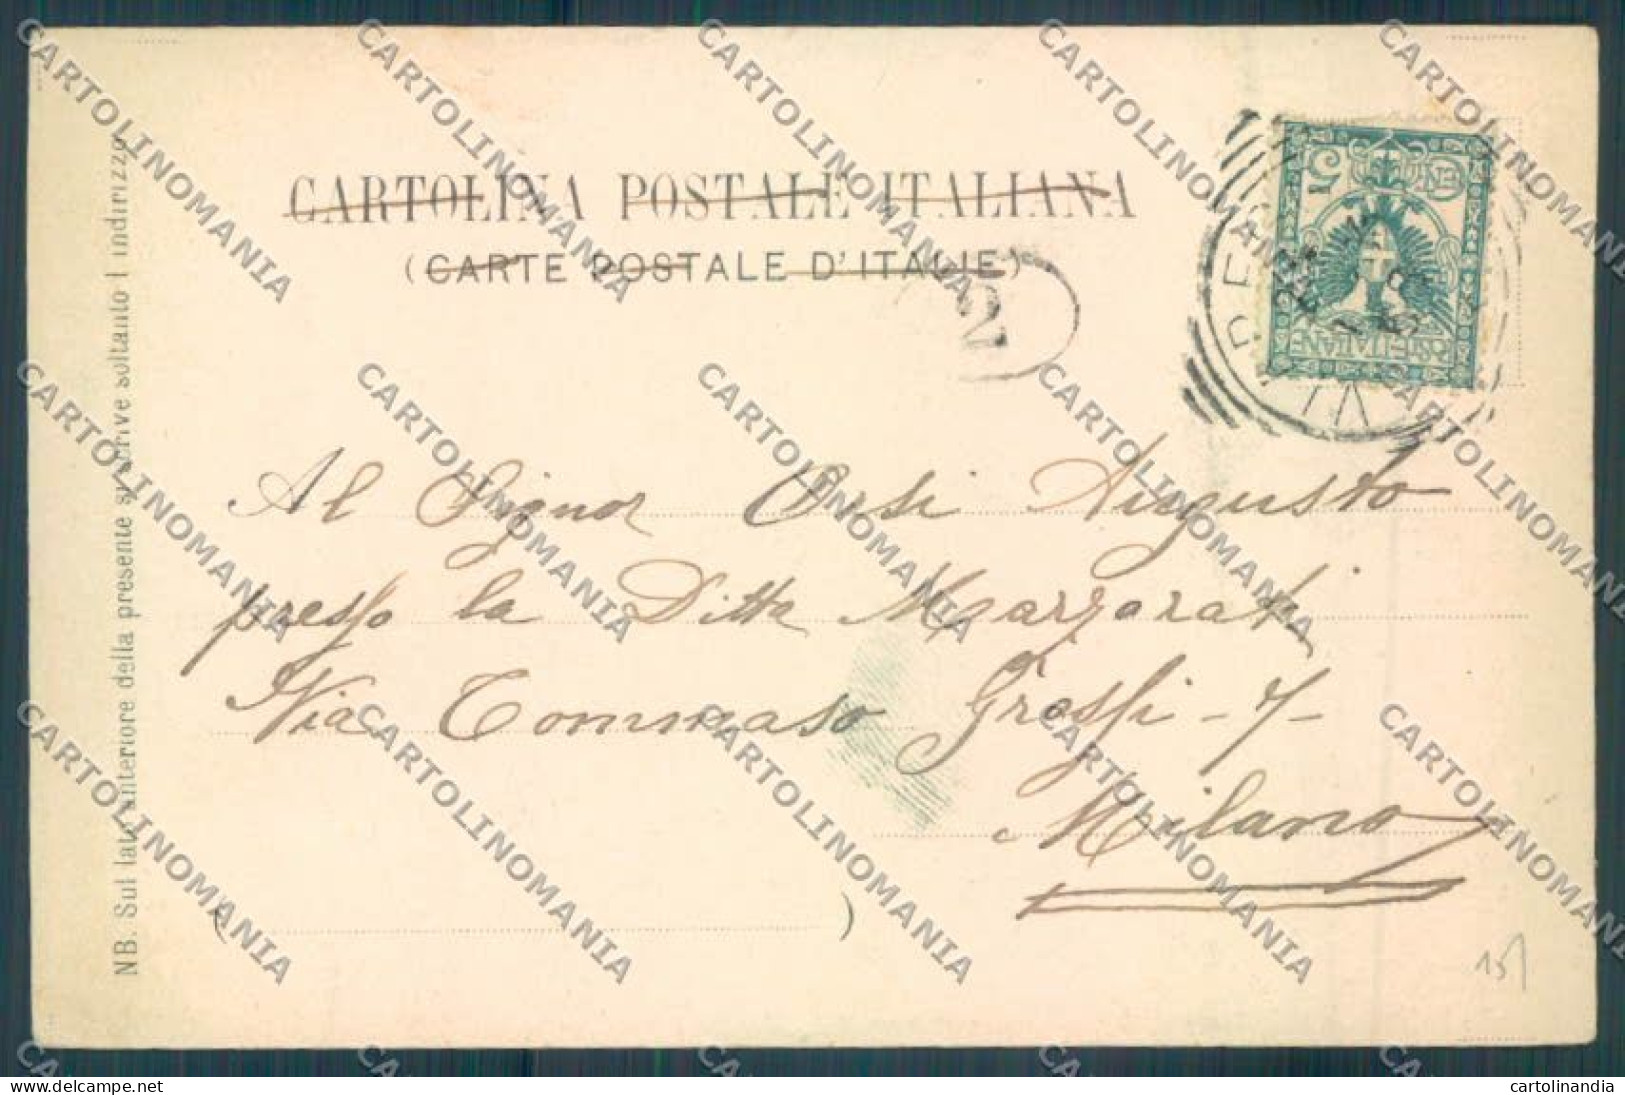 CARTOLINA POSTALE ITALIANA
(CARTE POSTALE D'ITALIE)
POSTE ITALIANE
CENT. 5
Al Signor Orsi Augusto
presso la Ditta Marzorati
Via Tommaso Grossi - 7 -
Milano
( )
NB. Sul lato anteriore della presente si scrive soltanto l'indirizzo
15
CARTOLINOMANIA
cartolinandia